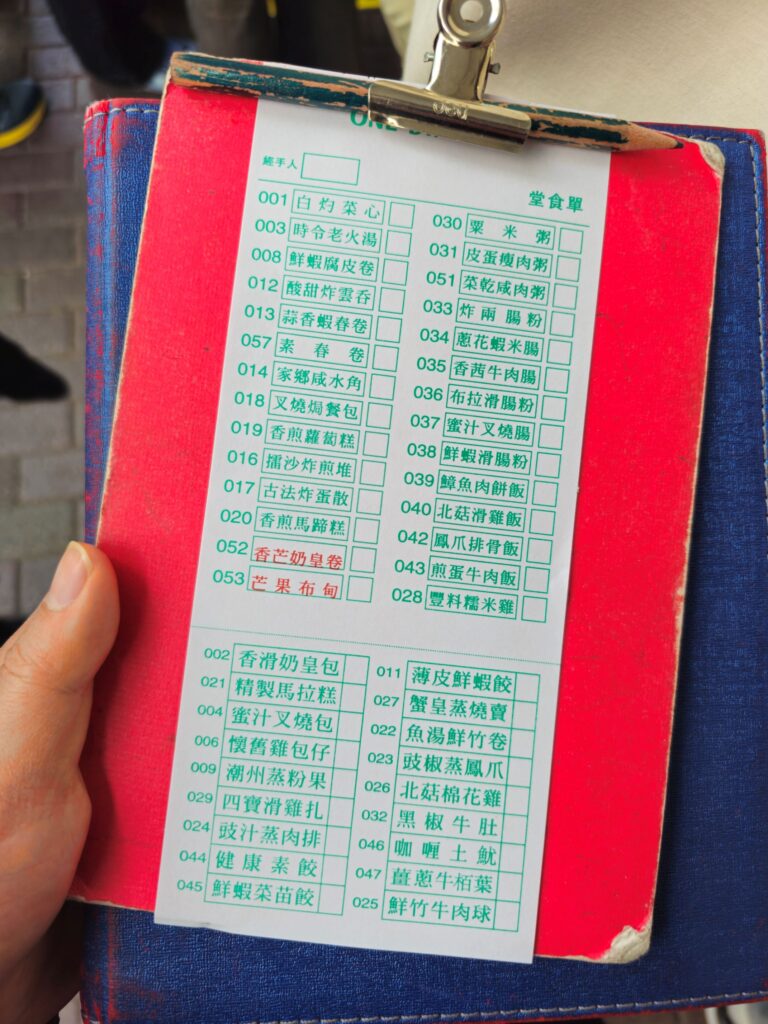 經手人
堂食單
001 白灼菜心
003 時令老火湯
008 鮮蝦腐皮卷
012 酸甜炸雲吞
013 蒜香蝦春卷
057 素春卷
014 家鄉咸水角
018 叉燒焗餐包
019 香煎蘿蔔糕
016 擂沙炸煎堆
017 古法炸蛋散
020 香煎馬蹄糕
052 香芒奶皇卷
053 芒果布甸
030 粟米粥
031 皮蛋瘦肉粥
051 菜乾咸肉粥
033 炸兩腸粉
034 蔥花蝦米腸
035 香茜牛肉腸
036 布拉滑腸粉
037 蜜汁叉燒腸
038 鮮蝦滑腸粉
039 鱆魚肉餅飯
040 北菇滑雞飯
042 鳳爪排骨飯
043 煎蛋牛肉飯
028 豐料糯米雞
002 香滑奶皇包
021 精製馬拉糕
004 蜜汁叉燒包
006 懷舊雞包仔
009 潮州蒸粉果
029 四寶滑雞扎
024 豉汁蒸肉排
044 健康素餃
045 鮮蝦菜苗餃
011 薄皮鮮蝦餃
027 蟹皇蒸燒賣
022 魚湯鮮竹卷
023 豉椒蒸鳳爪
026 北菇棉花雞
032 黑椒牛肚
046 咖喱土魷
047 薑蔥牛栢葉
025 鮮竹牛肉球